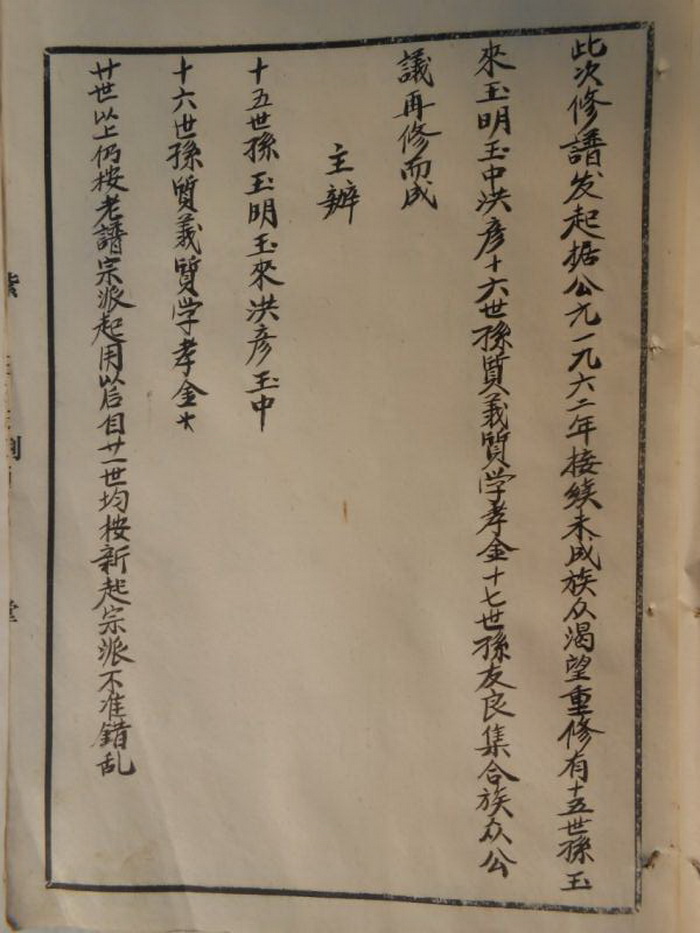 此次修譜发起据公元一九六二年接续未成族众渴望重修有十五世孫玉
來玉明玉中洪彦十六世孫質義質学孝金十七世孫友良集合族众公
議再修而成
主辦
十五世孫玉明玉來洪彦玉中
十六世孫質義質学孝金
廿世以上仍按老譜宗派起用以后自廿一世均按新起宗派不准錯乱